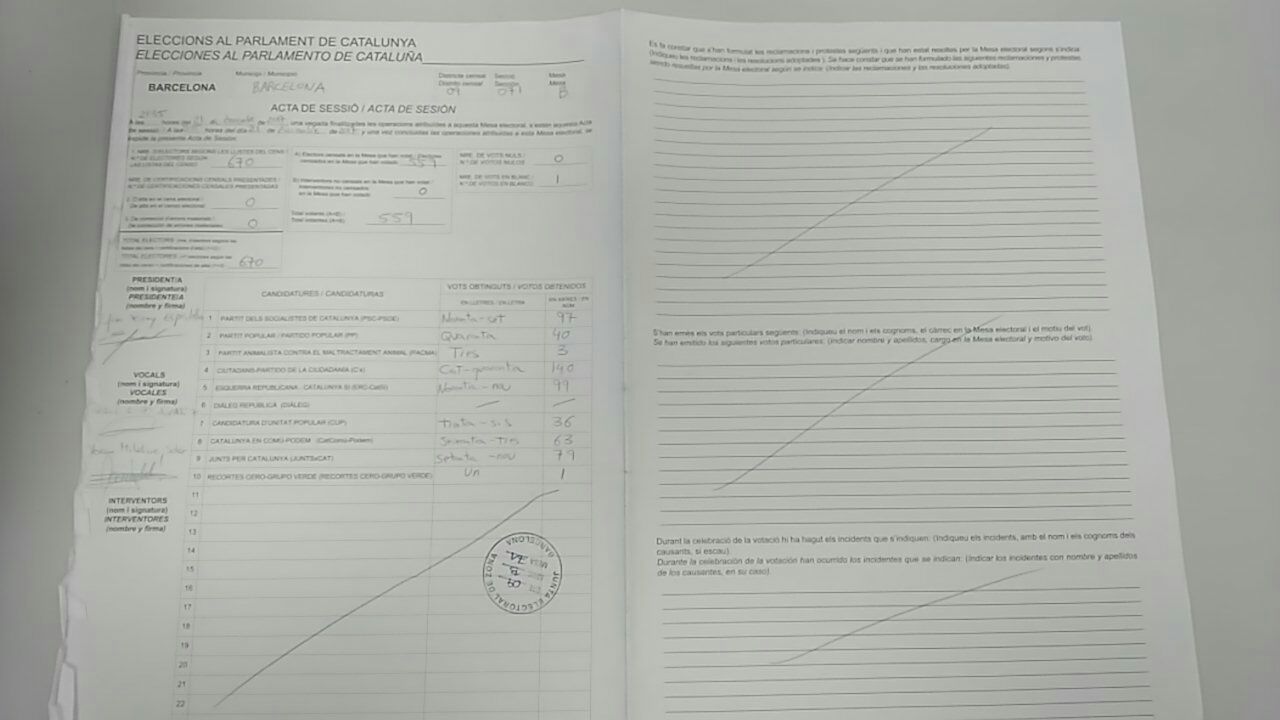 ELECCIONS AL PARLAMENT DE CATALUNYA
ELECCIONES AL PARLAMENTO DE CATALUÑA
Província / Provincia Municipi / Municipio Districte censal Secció Mesa
Distrito censal Sección Mesa
BARCELONA BARCELONA 09 071 B
ACTA DE SESSIÓ / ACTA DE SESIÓN
A les hores del 21 de de 2017, una vegada finalitzades les operacions atribuïdes a aquesta Mesa electoral, s'estén aquesta Acta
de sessió / A las horas del día 21 de de 2017 y una vez concluidas las operaciones atribuidas a esta Mesa electoral, se
expide la presente Acta de Sesión:
1. NRE. D'ELECTORS SEGONS LES LLISTES DEL CENS /
N.º DE ELECTORES SEGÚN
LAS LISTAS DEL CENSO 670
A) Electors censats en la Mesa que han votat / Electores
censados en la Mesa que han votado 559
NRE. DE VOTS NULS /
N.º DE VOTOS NULOS 0
NRE. DE CERTIFICACIONS CENSALS PRESENTADES /
N.º DE CERTIFICACIONES CENSALES PRESENTADAS
B) Interventors no censats en la Mesa que han votat /
Interventores no censados
en la Mesa que han votado 0
NRE. DE VOTS EN BLANC /
N.º DE VOTOS EN BLANCO 1
2. D'alta en el cens electoral /
De alta en el censo electoral 0
3. De correcció d'errors materials /
De corrección de errores materiales 0
Total votants (A+B) /
Total votantes (A+B) 559
TOTAL ELECTORS
TOTAL ELECTORES 670
PRESIDENT/A
(nom i signatura)
PRESIDENTE/A
(nombre y firma)
VOCALS
(nom i signatura)
VOCALES
(nombre y firma)
INTERVENTORS
(nom i signatura)
INTERVENTORES
(nombre y firma)
CANDIDATURES / CANDIDATURAS VOTS OBTINGUTS / VOTOS OBTENIDOS
EN LLETRES / EN LETRA EN XIFRES / EN NÚM
1 PARTIT DELS SOCIALISTES DE CATALUNYA (PSC-PSOE) Noranta-set 97
2 PARTIT POPULAR / PARTIDO POPULAR (PP) Quaranta 40
3 PARTIT ANIMALISTA CONTRA EL MALTRACTAMENT ANIMAL (PACMA) Tres 3
4 CIUTADANS-PARTIDO DE LA CIUDADANÍA (C's) Cent-quaranta 140
5 ESQUERRA REPUBLICANA - CATALUNYA SÍ (ERC-CatSí) Noranta-nou 99
6 DIÀLEG REPÚBLICA (DIÀLEG) — —
7 CANDIDATURA D'UNITAT POPULAR (CUP) Trenta-sis 36
8 CATALUNYA EN COMÚ-PODEM (CatComú-Podem) Seixanta-tres 63
9 JUNTS PER CATALUNYA (JUNTSxCAT) Setanta-nou 79
10 RECORTES CERO-GRUPO VERDE (RECORTES CERO-GRUPO VERDE) Un 1
11
12
13
14
15
16
17
18
19
20
21
22
JUNTA ELECTORAL DE ZONA
BARCELONA
Es fa constar que s'han formulat les reclamacions i protestes següents i que han estat resoltes per la Mesa electoral segons s'indica:
(Indiqueu les reclamacions i les resolucions adoptades). Se hace constar que se han formulado las siguientes reclamaciones y protestas
siendo resueltas por la Mesa electoral según se indica: (Indicar las reclamaciones y las resoluciones adoptadas).
S'han emès els vots particulars següents: (Indiqueu el nom i els cognoms, el càrrec en la Mesa electoral i el motiu del vot).
Se han emitido los siguientes votos particulares: (Indicar nombre y apellidos, cargo en la Mesa electoral y motivo del voto).
Durant la celebració de la votació hi ha hagut els incidents que s'indiquen: (Indiqueu els incidents, amb el nom i els cognoms dels
causants, si escau).
Durante la celebración de la votación han ocurrido los incidentes que se indican: (Indicar los incidentes con nombre y apellidos
de los causantes, en su caso).